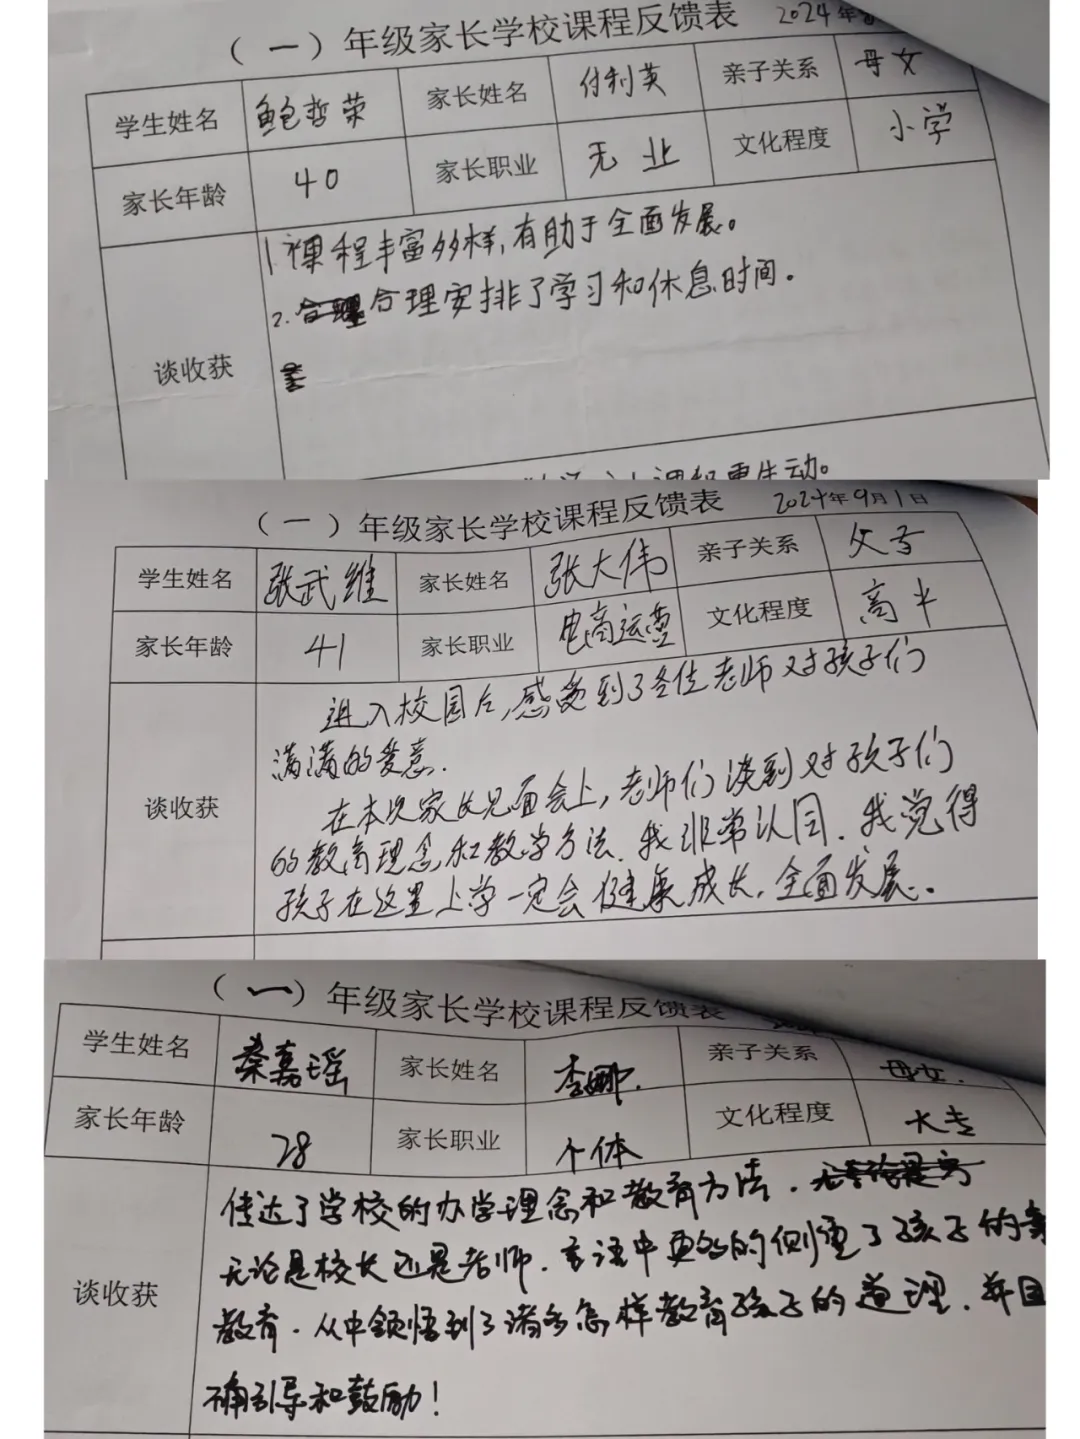 （一）年级家长学校课程反馈表 2024年
学生姓名 鲍哲荣 家长姓名 付利英 亲子关系 母女
家长年龄 40 家长职业 无业 文化程度 小学
1.课程丰富多样,有助于全面发展。
2.合理安排了学习和休息时间。
谈收获
更生动。
（一）年级家长学校课程反馈表 2024年9月1日
学生姓名 张武维 家长姓名 张大伟 亲子关系 父子
家长年龄 41 家长职业 电商运营 文化程度 高中
进入校园后,感受到了各位老师对孩子们
满满的爱意.
谈收获
在本次家长见面会上,老师们谈到对孩子们
的教育理念和教学方法.我非常认同.我觉得
孩子在这里上学一定会健康成长.全面发展.
（一）年级家长学校课程反馈表
学生姓名 秦嘉瑶 家长姓名 李娜. 亲子关系 母女.
家长年龄 28 家长职业 个体 文化程度 大专
传达了学校的办学理念和教育方法.
无论是校长还是老师.言语中更多的侧重了孩子的
谈收获
教育.从中领悟到了诸多怎样教育孩子的道理.并且
确引导和鼓励!